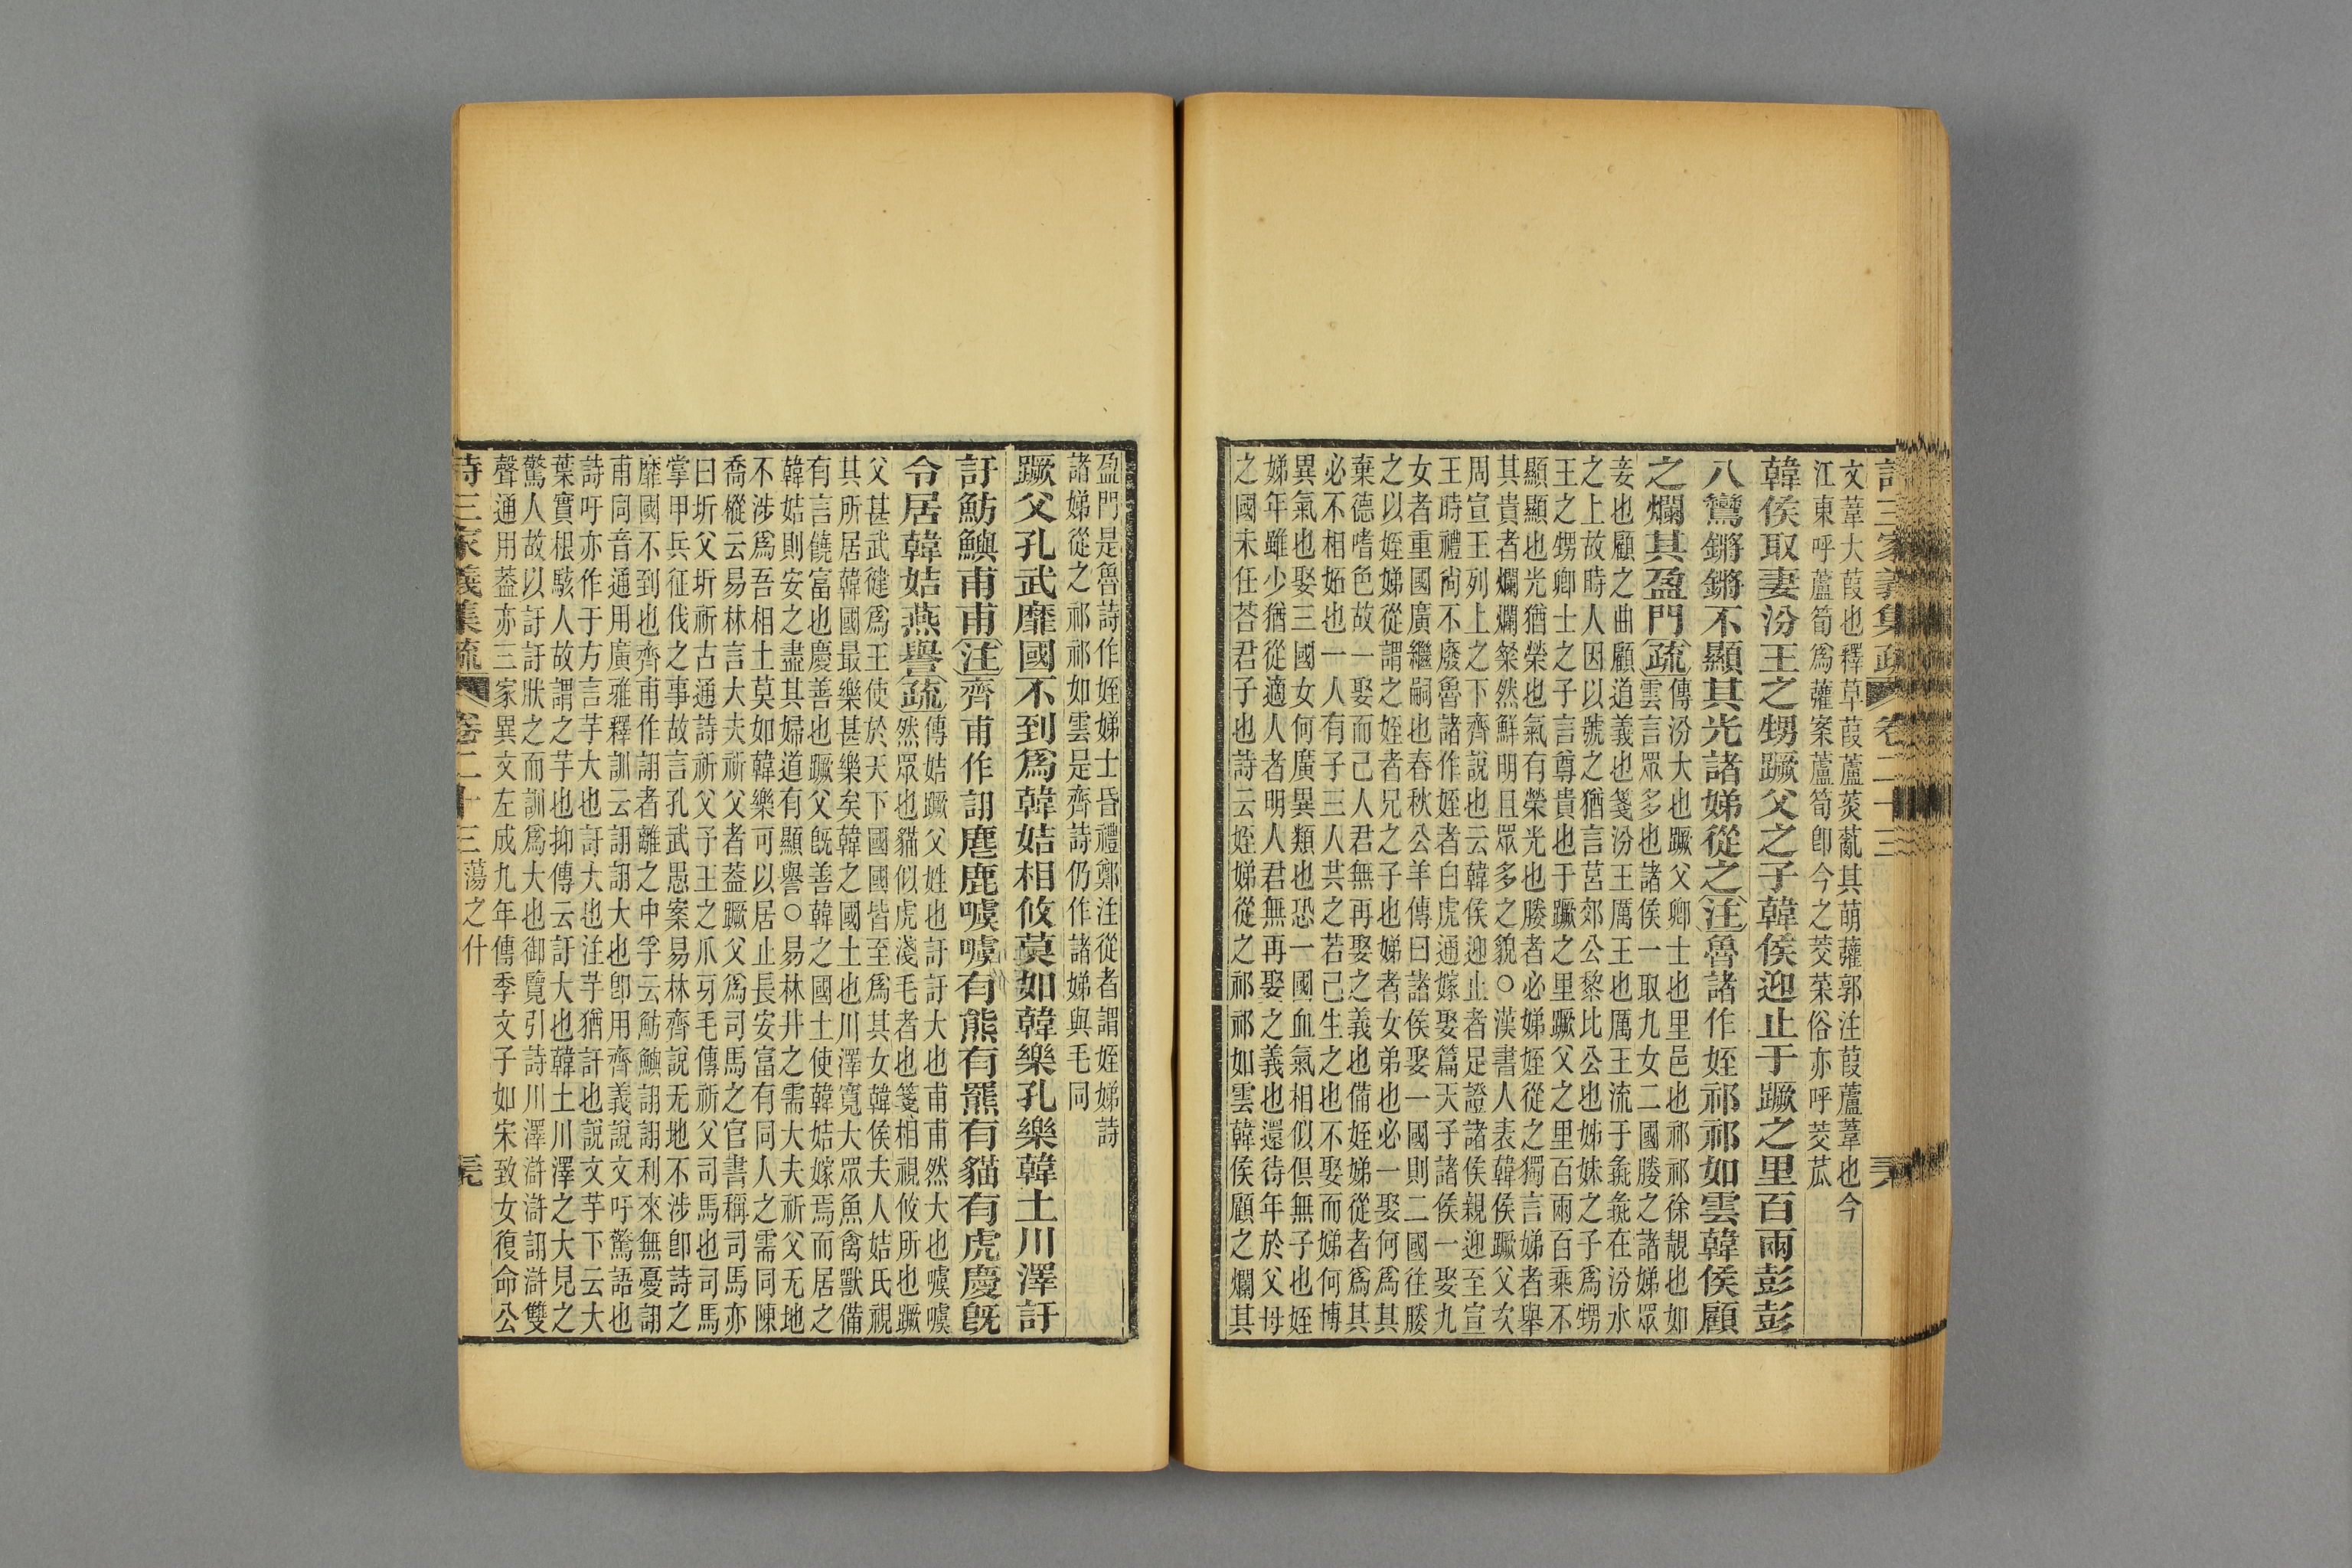 詩三家義集疏 卷二十三
文葦大葭也釋草葭蘆菼薍其萌虇郭注葭蘆葦也今
江東呼蘆筍爲虇案蘆筍卽今之茭菜俗亦呼茭苽
韓侯取妻汾王之甥蹶父之子韓侯迎止于蹶之里百兩彭彭
八鸞鏘鏘不顯其光諸娣從之注魯諸作姪祁祁如雲韓侯顧
之爛其盈門疏
傳汾大也蹶父卿士也里邑也祁祁徐靚也如
雲言眾多也諸侯一取九女二國媵之諸娣眾
妾也顧之曲顧道義也箋汾王厲王也厲王流于彘彘在汾水
之上故時人因以號之猶言莒郊公黎比公也姊妹之子爲甥
王之甥卿士之子言尊貴也于蹶之里蹶父之里百兩百乘不
顯顯也光猶榮也氣有榮光也媵者必娣姪從之獨言娣者舉
其貴者爛爛粲然鮮明且眾多之貌○漢書人表韓侯蹶父次
周宣王列上之下齊說也云韓侯迎止者足證諸侯親迎至宣
王時禮尙不廢魯諸作姪者白虎通嫁娶篇天子諸侯一娶九
女者重國廣繼嗣也春秋公羊傳曰諸侯娶一國則二國往媵
之以姪娣從謂之姪者兄之子也娣者女弟也必一娶何爲其
棄德嗜色故一娶而己人君無再娶之義也備姪娣從者爲其
必不相妬也一人有子三人共之若己生之也不娶而娣何博
異氣也娶三國女何廣異類也恐一國血氣相似俱無子也姪
娣年雖少猶從適人者明人君無再娶之義也還待年於父母
之國未任荅君子也詩云姪娣從之祁祁如雲韓侯顧之爛其
盈門是魯詩作姪娣士昏禮鄭注從者謂姪娣詩
諸娣從之祁祁如雲是齊詩仍作諸娣與毛同
蹶父孔武靡國不到爲韓姞相攸莫如韓樂孔樂韓土川澤訏
訏魴鱮甫甫注齊甫作詡麀鹿噳噳有熊有羆有貓有虎慶旣
令居韓姞燕譽疏
傳姞蹶父姓也訏訏大也甫甫然大也噳噳
然眾也貓似虎淺毛者也箋相視攸所也蹶
父甚武健爲王使於天下國國皆至爲其女韓侯夫人姞氏視
其所居韓國最樂甚樂矣韓之國土也川澤寬大眾魚禽獸備
有言饒富也慶善也蹶父旣善韓之國土使韓姞嫁焉而居之
韓姞則安之盡其婦道有顯譽○易林井之需大夫祈父无地
不涉爲吾相土莫如韓樂可以居止長安富有同人之需同陳
喬樅云易林言大夫祈父者蓋蹶父爲司馬之官書稱司馬亦
曰圻父圻祈古通詩祈父子王之爪牙毛傳祈父司馬也司馬
掌甲兵征伐之事故言孔武愚案易林齊說无地不涉卽詩之
靡國不到也齊甫作詡者離之中孚云魴鱮詡詡利來無憂詡
甫同音通用廣雅釋訓云詡詡大也卽用齊義說文吁驚語也
詩吁亦作于方言芋大也訏大也注芋猶訏也說文芋下云大
葉實根駭人故謂之芋也抑傳云訏大也韓土川澤之大見之
驚人故以訏訏狀之而訓爲大也御覽引詩川澤滸滸詡滸雙
聲通用蓋亦三家異文左成九年傳季文子如宋致女復命公
詩三家義集疏 卷二十三 蕩之什